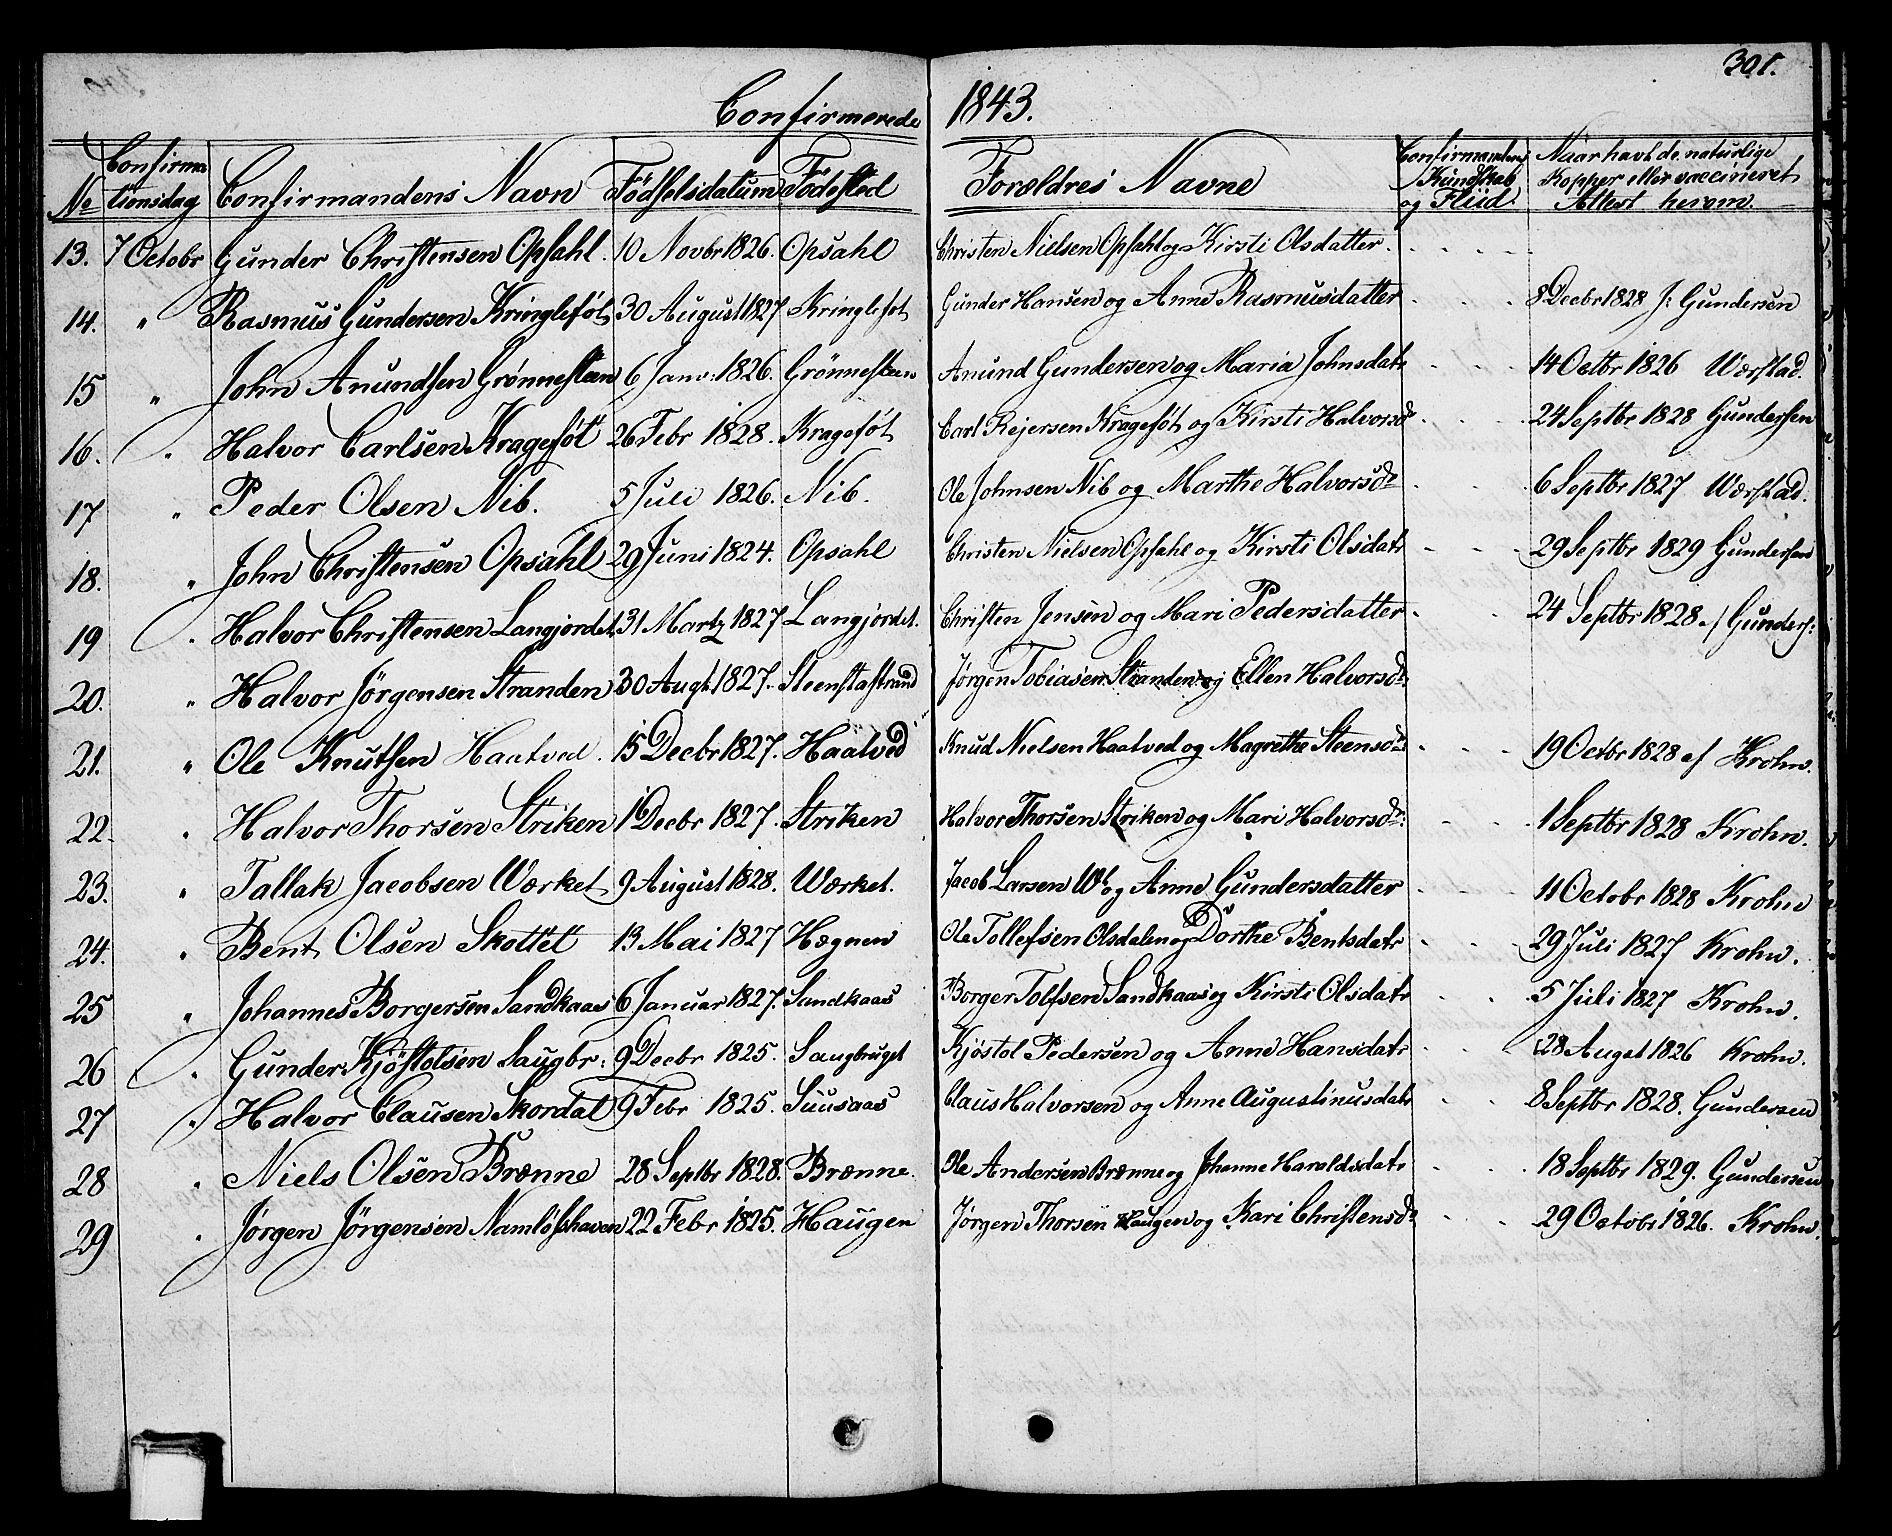 301.
Confirmerede 1843.
No Confirmationsdag Confirmandens Navn Födselsdatum Födested Forældres Navne Confirmandens Kundskab og Fliid. Naar havt de naturlige Kopper eller vaccineret Attest herom.
13. 7 Octobr Gunder Christensen Opsahl. 10 Novbr 1826. Opsahl Christen Nielsen Opsahl og Kirsti Olsdatter.
14. " Rasmus Gundersen Kringlefôt 30 August 1827 Kringlefot Gunder Hansen og Anne Rasmusdatter 8 Decbr 1828 J: Gundersen
15 " John Anundsen Grønnesteen 6 Janv: 1826. Grönnesteen Anund Gundersen og Maria Johnsdatr 14 Octbr 1826 Værstad.
16. " Halvor Carlsen Kragefôt 26 Febr 1828. Kragefôt Carl Rejersen Kragefôt og Kirsti Halvorsdr 24 Septbr 1828 Gundersen
17 " Peder Olsen Nib. 5 Juli 1826. Nib. Ole Johnsen Nib og Marthe Halvorsdr 6 Septbr 1827 Værstad.
18. " John Christensen Opsahl 29 Juni 1824. Opsahl Christen Nielsen Opsahl og Kirsti Olsdatr 29 Septbr 1829 Gundersen
19 " Halvor Christensen Langjordet 31 Martz 1827 Langjordet. Christen Jensen og Mari Pedersdatter 24 Septbr 1828 af Gunders:
20. " Halvor Jörgensen Stranden 30 Augt 1827. Steenstastrand Jørgen Tobiasen Stranden og Ellen Halvorsdr:
21. " Ole Knutsen Haatved. 15 Decbr 1827. Haatved Knud Nielsen Haatved og Magrethe Steensdr 19 Octbr 1828 af Krohn.
22. " Halvor Thorsen Striken 1 Decbr 1827. Striken Halvor Thorsen Striken og Mari Halvorsdr: 1 Septbr 1828 Krohn.
23. " Tallak Jacobsen Værket 9 August 1828. Værket. Jacob Larsen og Anne Gundersdatter 11 Octobr 1828 Krohn
24. " Bent Olsen Skottet 13 Mai 1827 Hægnen Ole Tollefsen Olsdalen og Dorthe Bentsdatr 29 Juli 1827 Krohn.
25 " Johannes Borgersen Sandkaas 6 Januar 1827. Sandkaas Borger Tolfsen Sandkaas og Kirsti Olsdatr 5 Juli 1827 Krohn.
26 " Gunder Kjöstolsen Saugbr: 9 Decbr 1825. Saugbruget Kjöstol Pedersen og Anne Hansdatr 28 Augst 1826 Krohn.
27 " Halvor Clausen Skordal 9 Febr 1825. Suusaas Claus Halvorsen og Anne Augustinusdatr 8 Septbr 1828. Gundersen
28 " Niels Olsen Brænne 28 Septbr 1828. Brænne. Ole Andersen Brænne og Johanne Haraldsdatr 18 Septbr 1829. Gundersen
29 " Jørgen Jörgensen Namlöshaven 22 Febr 1825. Haugen Jørgen Thorsen Haugen og Kari Christensdr 29 Octobr 1826. Krohn.